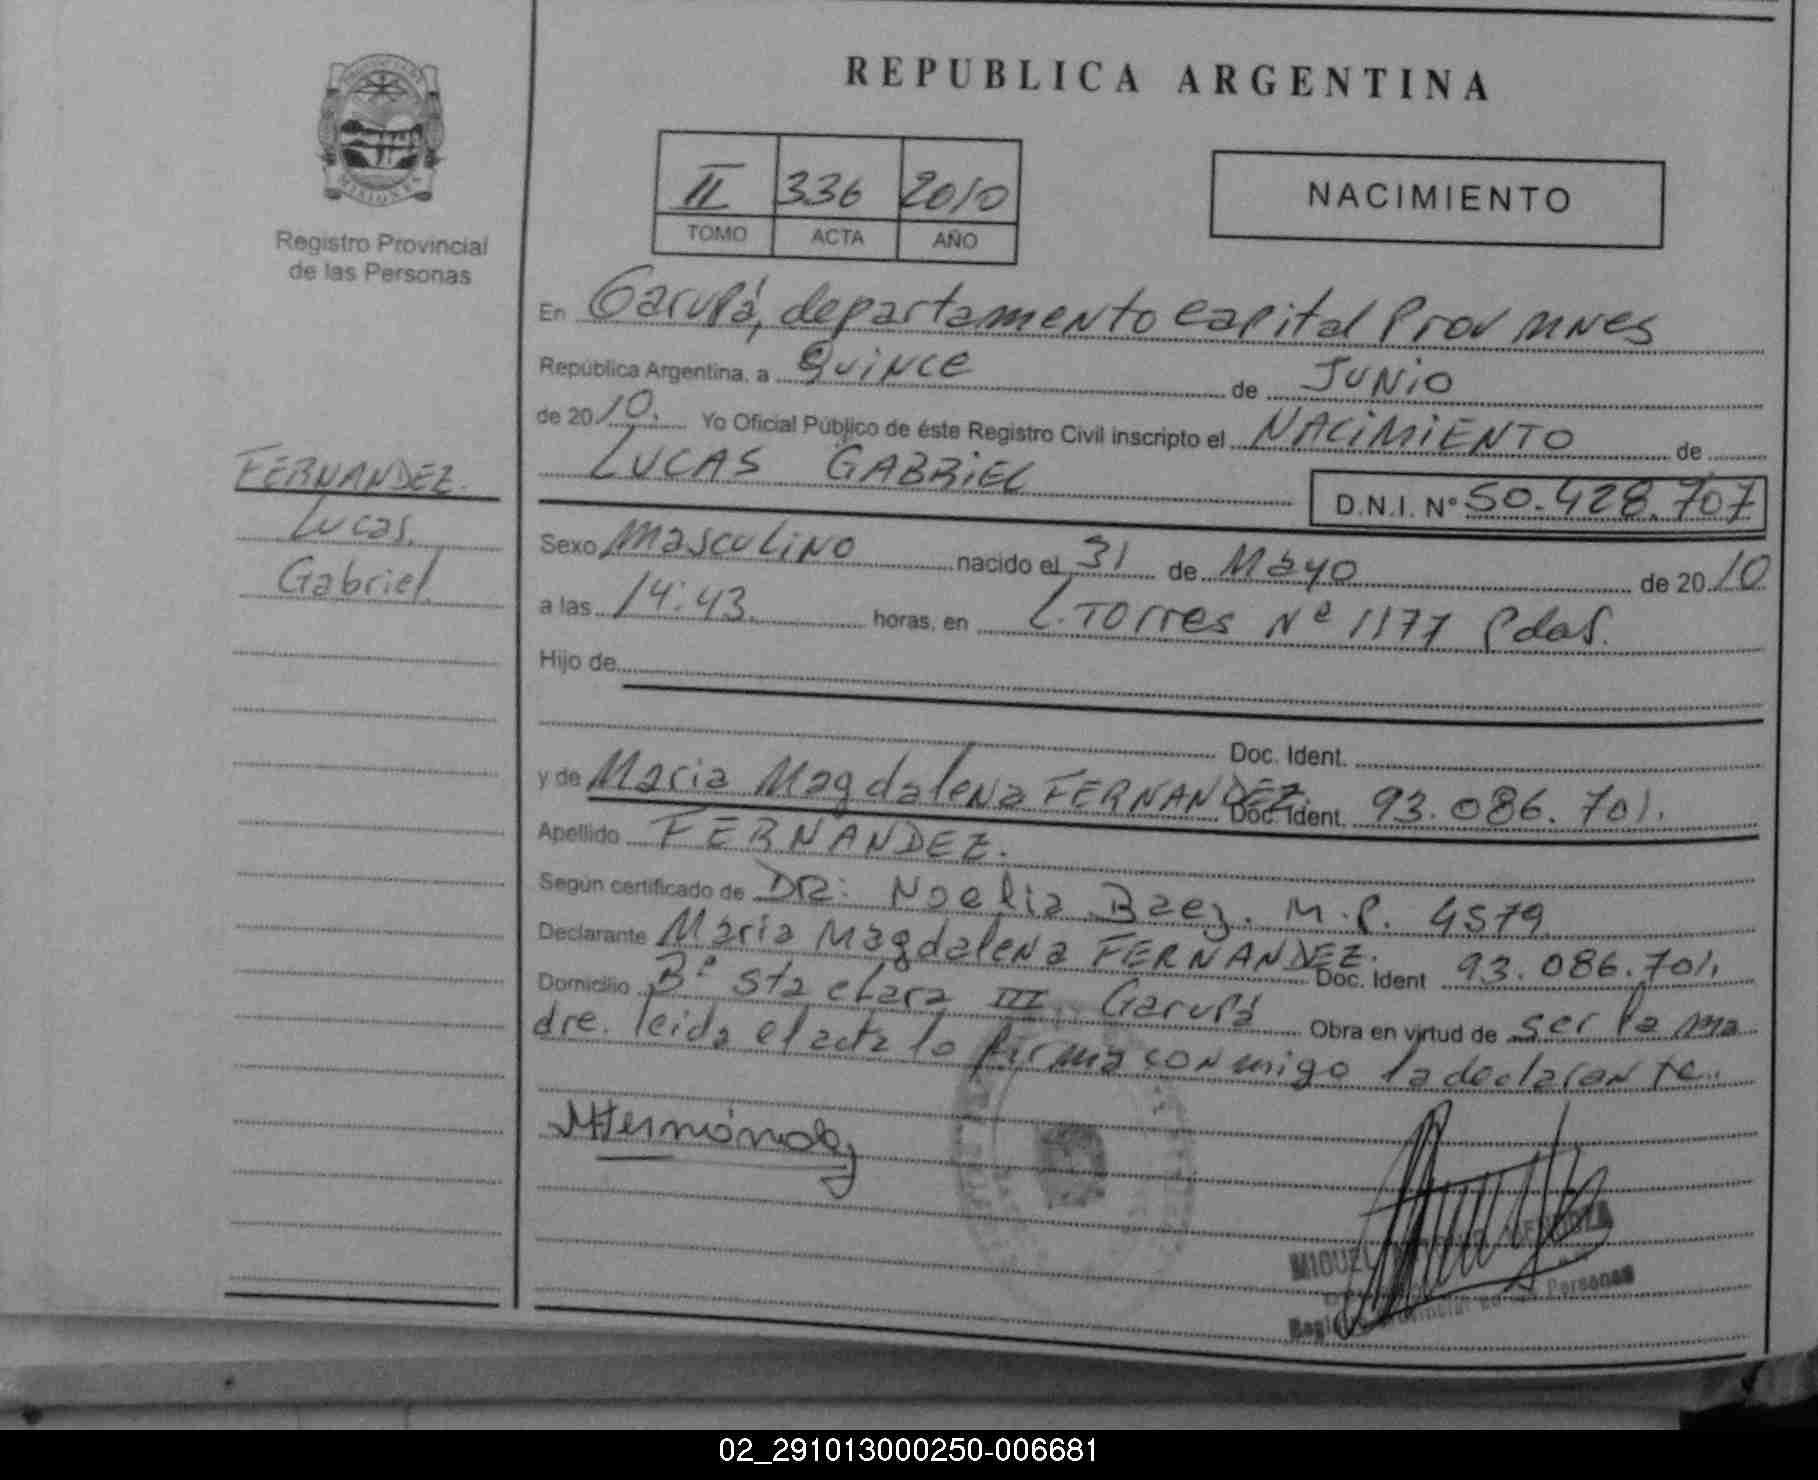 REPUBLICA ARGENTINA
MISIONES
Registro Provincial
de las Personas
II 336 2010
TOMO ACTA AÑO
NACIMIENTO
En Garupá, departamento capital Prov MNES
República Argentina, a Quince de JUNIO
de 2010. Yo Oficial Público de éste Registro Civil inscripto el NACIMIENTO de
LUCAS GABRIEL
D.N.I. Nº 50.428.707
FERNANDEZ.
Lucas.
Gabriel.
Sexo Masculino nacido el 31 de Mayo de 2010
a las 14:43. horas, en L. Torres Nº 1177 Pdas.
Hijo de
Doc. Ident.
y de Maria Magdalena FERNANDEZ. Doc. Ident. 93.086.701.
Apellido FERNANDEZ.
Según certificado de DRa: Noelia Baez. M.P. 4579
Declarante Maria Magdalena FERNANDEZ. Doc. Ident 93.086.701.
Domicilio Bº Sta clara III Garupá Obra en virtud de ser la ma
dre. leida el acta lo firma conmigo la declarante.
MIGUEL MENDOZA
Personas
02_291013000250-006681